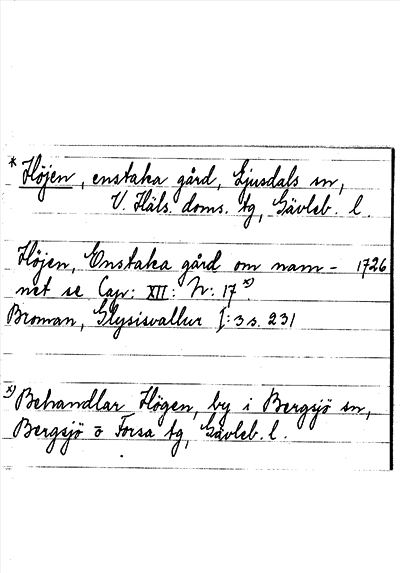 * Höjen, enstaka gård, Ljusdals sn,
V. Häls. doms. tg, Gävleb. l.
Höjen, Enstaka gård om nam- 1726
net se Cap: XII: N: 17 x)
Broman, Glysisvallur I: 3 s. 231
x) Behandlar Högen, by i Bergsjö sn,
Bergsjö o Forsa tg, Gävleb. l.